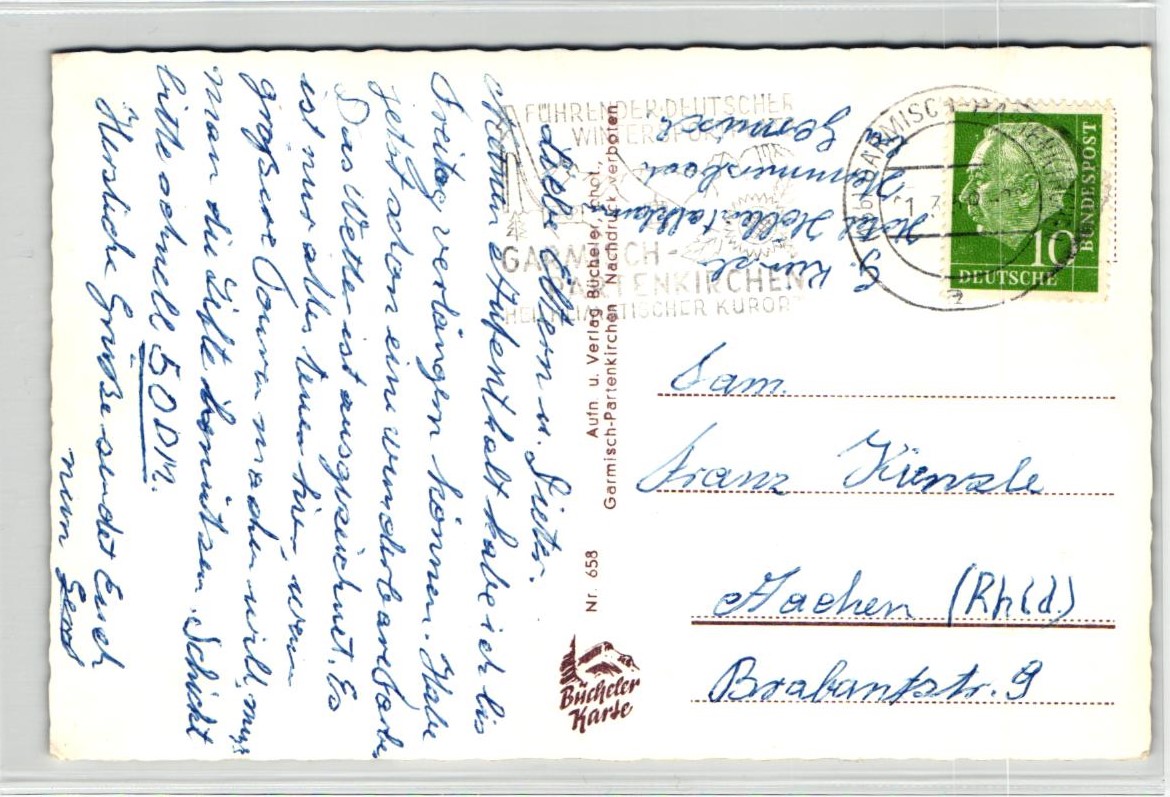 Liebe Eltern u. Dieter.
Meinen Aufenthalt habe ich bis
Freitag verlängen können. Habe
jetzt schon eine wunderbare Farbe.
Das Wetter ist ausgezeichnet. Es
ist nur alles teuer hier, wenn
grössere Touren machen will, muß
man die Lifte benützen. Schickt
bitte schnell 50 DM.
Herzliche Grüße sendet Euch
nun Gerd
G. Kienzle
Hotel Höllentalklamm
Hammersbach
Garmisch
FÜHRENDER DEUTSCHER
WINTERSPORT
GARMISCH-
PARTENKIRCHEN
HEILKLIMATISCHER KURORT
GARMISCH-PARTENKIRCHEN
10
DEUTSCHE
BUNDESPOST
Fam.
Franz Kienzle
Aachen (Rhld.)
Brabantstr. 9
Aufn. u. Verlag Bücheler, Phot.,
Garmisch-Partenkirchen Nachdruck verboten
Nr. 658
Bücheler
Karte